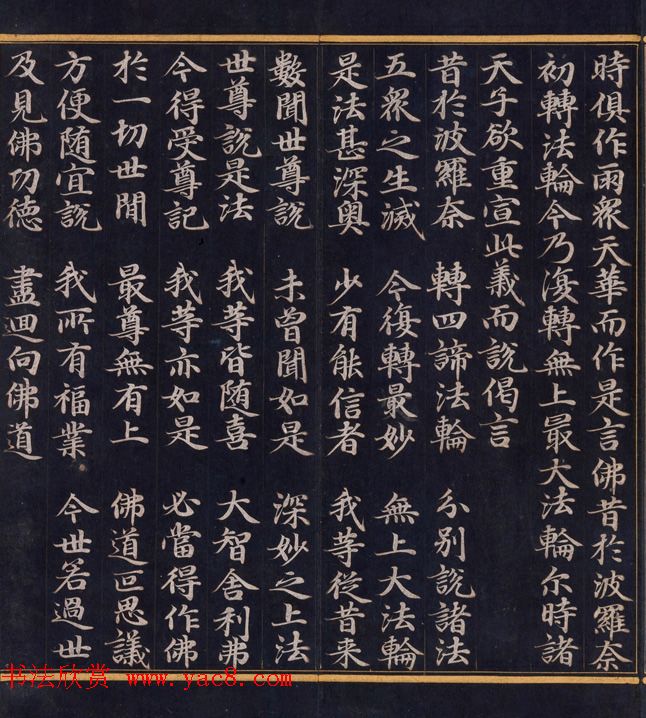 時俱作雨眾天華而作是言佛昔於波羅奈
初轉法輪今乃復轉無上最大法輪尓時諸
天子欲重宣此義而說偈言
昔於波羅奈 轉四諦法輪 分別說諸法
五眾之生滅 今復轉最妙 無上大法輪
是法甚深奧 少有能信者 我等從昔来
數聞世尊說 未曾聞如是 深妙之上法
世尊說是法 我等皆随喜 大智舍利弗
今得受尊記 我等亦如是 必當得作佛
於一切世間 最尊無有上 佛道叵思議
方便随宜說 我所有福業 今世若過世
及見佛功德 盡迴向佛道
书法欣赏 www.yac8.com